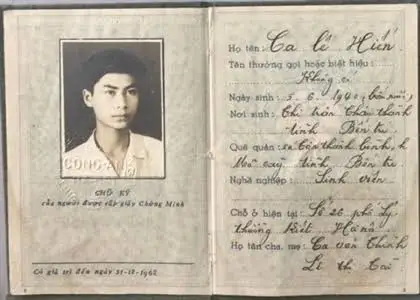 CÔNG-AN
CHỮ KÝ
của người được cấp giấy Chứng Minh
Có giá trị đến ngày 31-12-1962
Họ tên: Ca lê Hiến
Tên thường gọi hoặc biệt hiệu:
Không có
Ngày sinh: 5.6.1940
Nơi sinh: Thị trấn Châu thành
tỉnh Bến tre
Quê quán: xã thành
Mỏ cày tỉnh Bến tre
Nghề nghiệp: Sinh viên
Chỗ ở hiện tại: Số 26 phố Lý
thường Kiệt Hà nội
Họ tên cha, mẹ: Ca văn Thỉnh
Lê thị